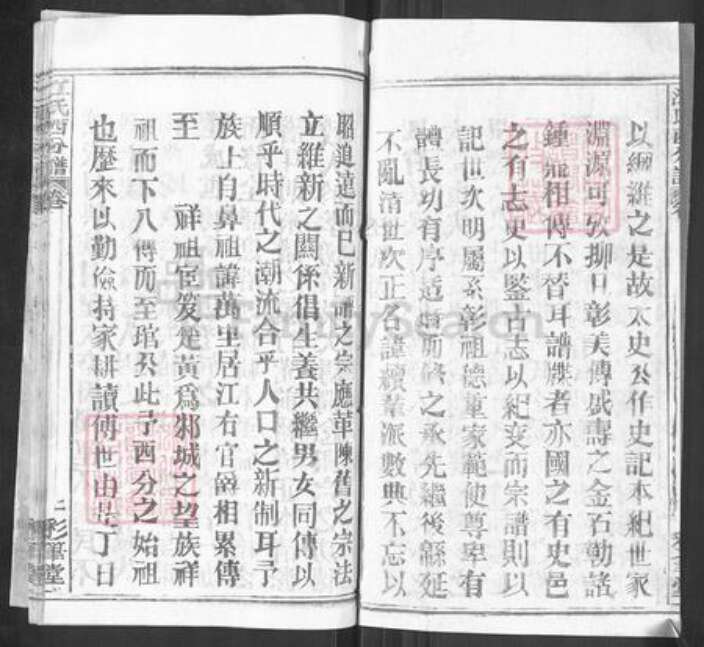 以綱維之是故太史公作史記本紀世家
淵源可攷抑口彰美傳盛壽之金石勒諸
鍾鼎相傳不替耳譜牒者亦國之有史邑
之有志史以鑒古志以紀变而宗譜則以
記世次明屬系彰祖德重家範使尊卑有
體長幼有序适時而修之承先繼後緜延
不亂清世次正名諱續輩派數典不忘以
昭追遠而已新譜之宗應革陳舊之宗法
立維新之關係倡生養共繼男女同傳以
順乎時代之潮流合乎人口之新制耳予
族上自鼻祖諱萬里居江右官爵相累傳
至 祥祖宦笈楚黃爲邾城之望族祥
祖而下八傳而至琯公此予西分之始祖
也歷來以勤儉持家耕讀傳世由是丁日
江氏西分譜 卷
二 彩筆堂
FamilySearch